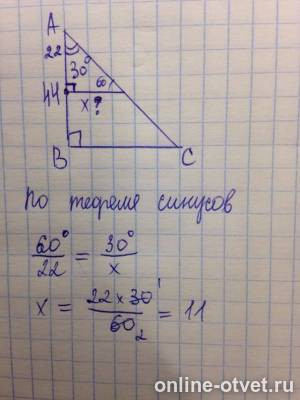 A
22
30°
60
44
x ?
B
C
По теореме синусов
60°/22 = 30°/x
x = 22 x 30 1/60 2 = 11
online-otvet.ru